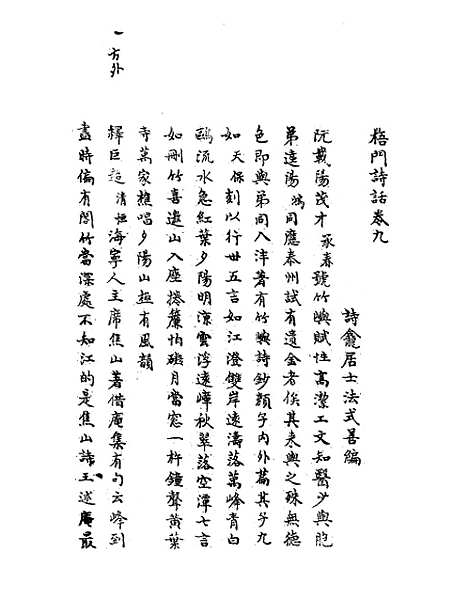 梧門詩話卷九
詩龕居士法式善編
阮載陽茂才承春號竹嶼賦性高潔工文知醫少與胞
弟達陽鴻同應泰州試有遺金者俟其來與之殊無德
色即與弟同入泮著有竹嶼詩鈔顏子內外篇其子九
如天保刻以行世五言如江澄雙岸遠濤落萬峰青白
鷗流水急紅葉夕陽明涼雲浮遠嶂秋翠落空潭七言
如刪竹喜邀山入座捲簾怕礙月當窓一杵鐘聲黃葉
寺萬家樵唱夕陽山極有風韻
釋巨超清恒海寧人主席焦山著借庵集有句云峰到
盡時偏有閣竹當深處不知江的是焦山詩王述庵最
方外